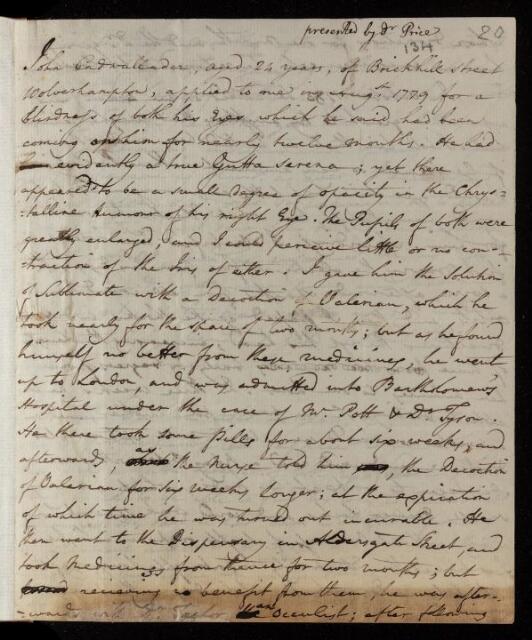 presented by Dr Price 20
134
John Cadwallender, aged 24 years, of Brickhill Street
Wolverhampton, applied to me in Augst. 1779 for a
blindness of both his Eyes, which he said had been
coming on him for nearly twelve months. He had
evidently a true Gutta Serena; yet there
appeared to be a small degree of opacity in the Chrys=
=talline Humour of his right Eye. The Pupils of both were
greatly enlarged, and I could perceive little or no con=
=traction of the Iris of either. I gave him the Solution
of Sublimate with a Decoction of Valerian, which he
took nearly for the space of two months; but as he found
himself no better from these medicines, he went
up to London, and was admitted into Bartholomews
Hospital under the care of Mr. Pott & Dr. Tyson.
He there took some Pills for about six weeks, and
afterwards, as the Nurse told him, the Decoction
of Valerian for six weeks longer; at the expiration
of which time he was turned out incurable. He
then went to the Dispensary in Aldersgate Street, and
took Medicines from thence for two months; but
receiving no benefit from them, he was after=
=wards with Dr. Taylor an Occulist; after following